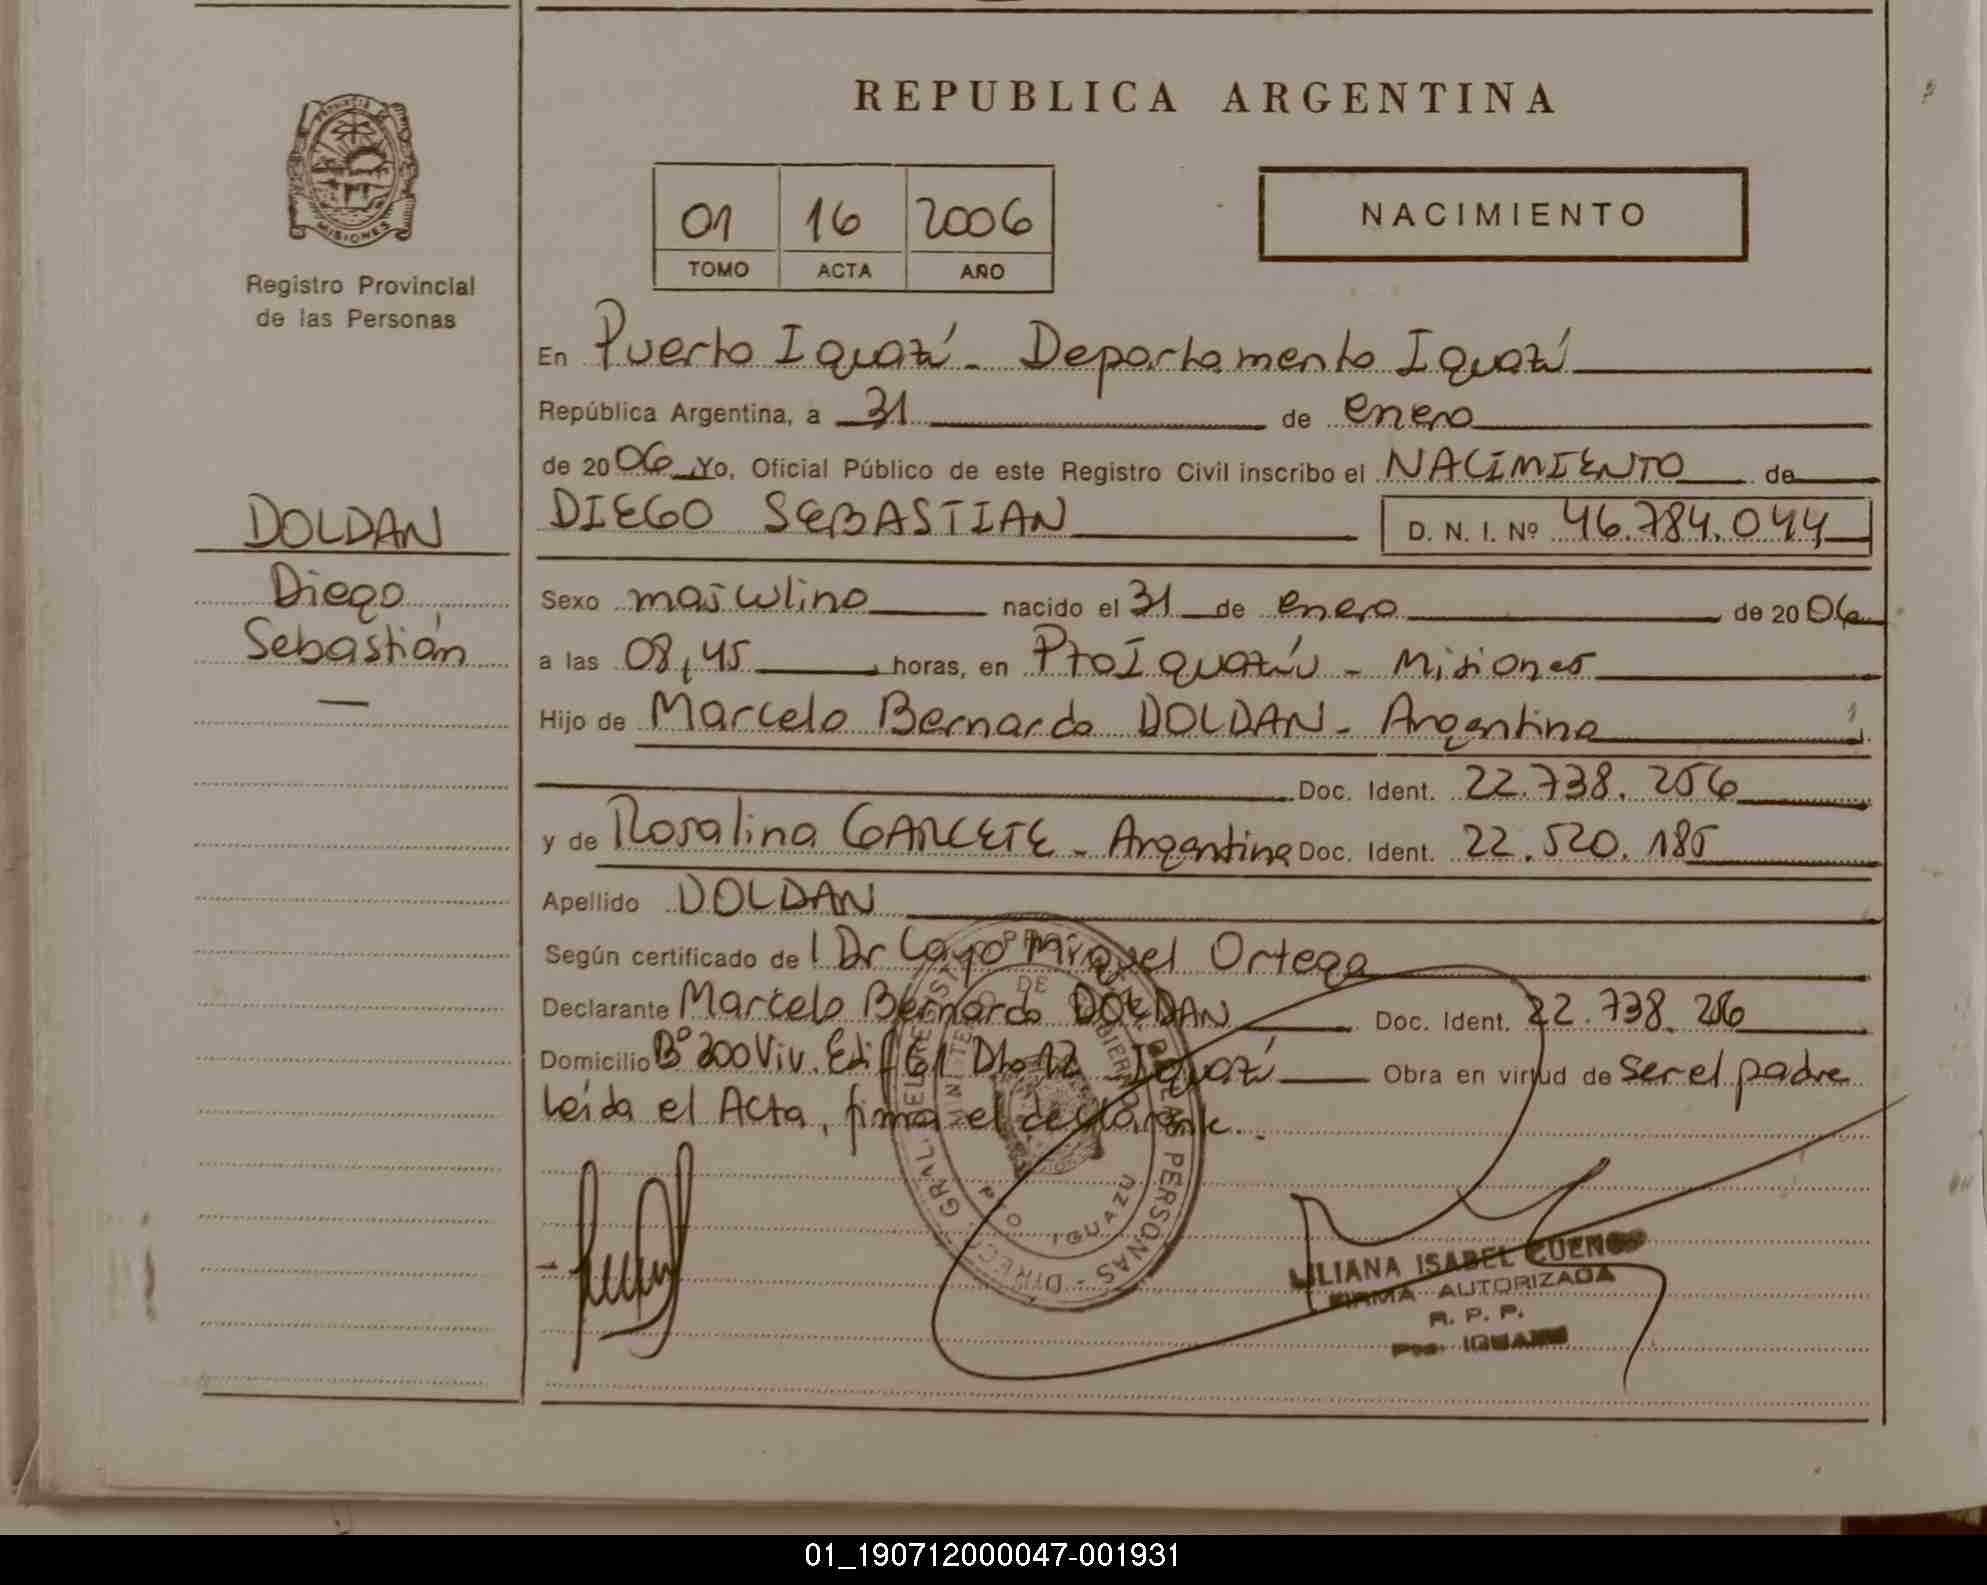 REPUBLICA ARGENTINA
PROVINCIA
MISIONES
Registro Provincial
de las Personas
01 16 2006
TOMO ACTA AÑO
NACIMIENTO
En Puerto Iguazú - Departamento Iguazú
República Argentina, a 31 de enero
de 2006 Yo, Oficial Público de este Registro Civil inscribo el NACIMIENTO de
DOLDAN
Diego
Sebastián
DIEGO SEBASTIAN D. N. I. Nº 46.784.044
Sexo masculino nacido el 31 de enero de 2006
a las 08,45 horas, en Pto Iguazú - Misiones
Hijo de Marcelo Bernardo DOLDAN - Argentino
Doc. Ident. 22.738.256
y de Rosalina GARCETE - Argentina Doc. Ident. 22.520.185
Apellido DOLDAN
Según certificado del Dr Cayo Miguel Ortega
Declarante Marcelo Bernardo DOLDAN Doc. Ident. 22.738.256
Domicilio Bº 300 Viv. Edif 61 Dto 12 Iguazú Obra en virtud de ser el padre
Leída el Acta, firma el declarante.
PERSONAS - DIRECC. GRAL.
IGUAZU
LILIANA ISABEL CUENCA
FIRMA AUTORIZADA
R. P. P.
Pto. IGUAZU
01_190712000047-001931